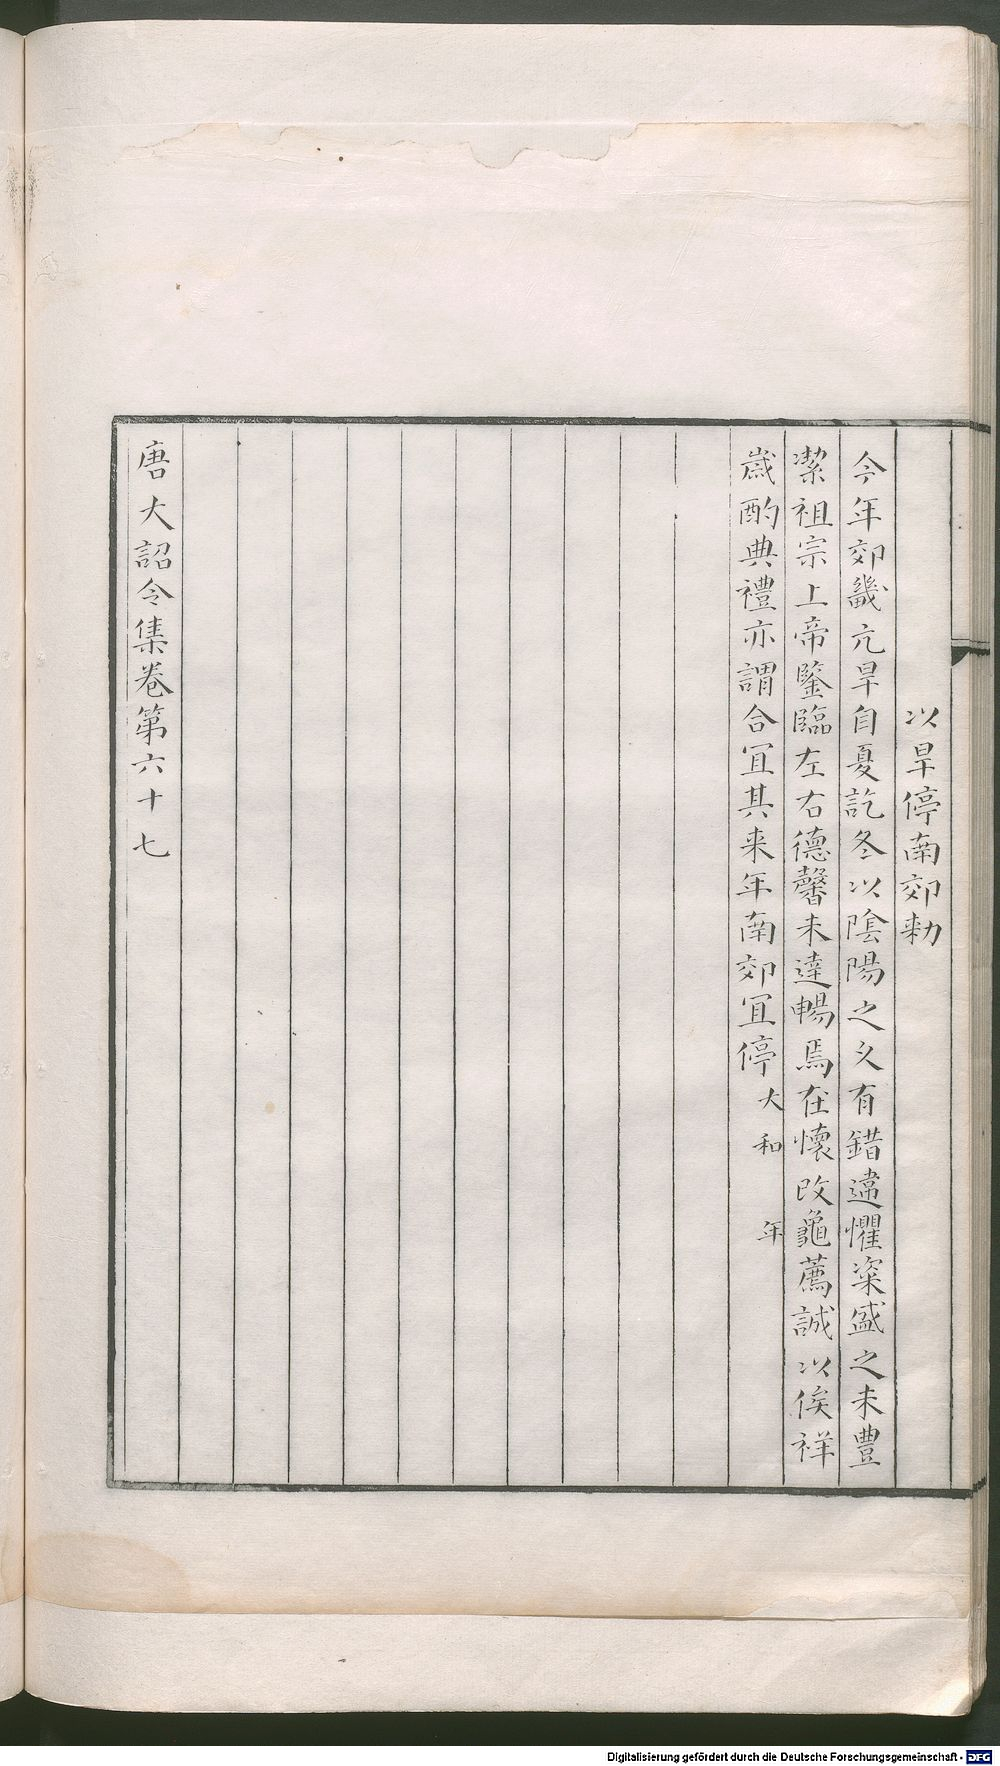 以旱停南郊勅
今年郊畿亢旱自夏訖冬以陰陽之久有錯違懼粢盛之未豐
潔祖宗上帝鑒臨左右德馨未達暢焉在懷改龜薦誠以俟祥
歲酌典禮亦謂合宜其来年南郊宜停大和　年
唐大詔令集卷第六十七
Digitalisierung gefördert durch die Deutsche Forschungsgemeinschaft - DFG